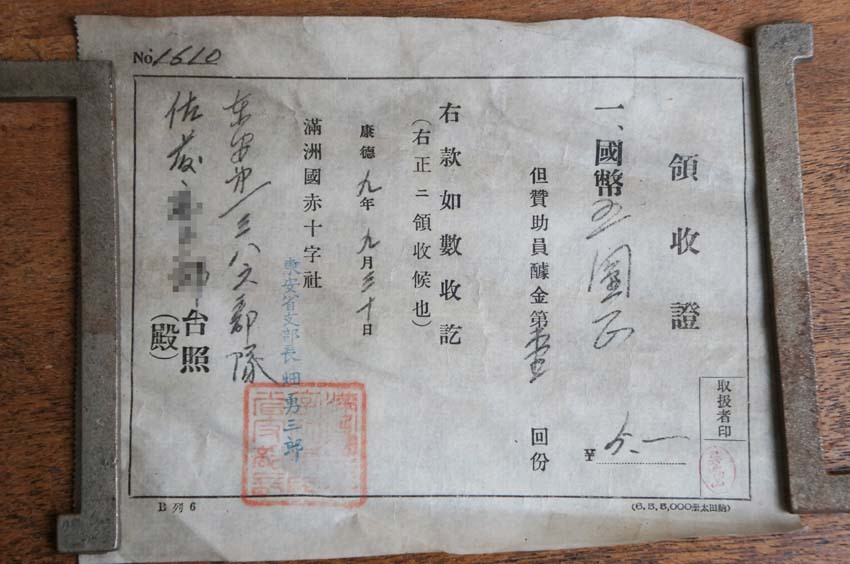 No. 1610
領收證
一、國幣五圓正
¥ 5.一
但贊助員醵金第壹回份
右款如數收訖
(右正ニ領收候也)
康德九年九月三十日
滿洲國赤十字社
東安省支部長 畑勇三郎
东安第一三八之部隊
佐藤
台照
(殿)
取扱者印
B列6